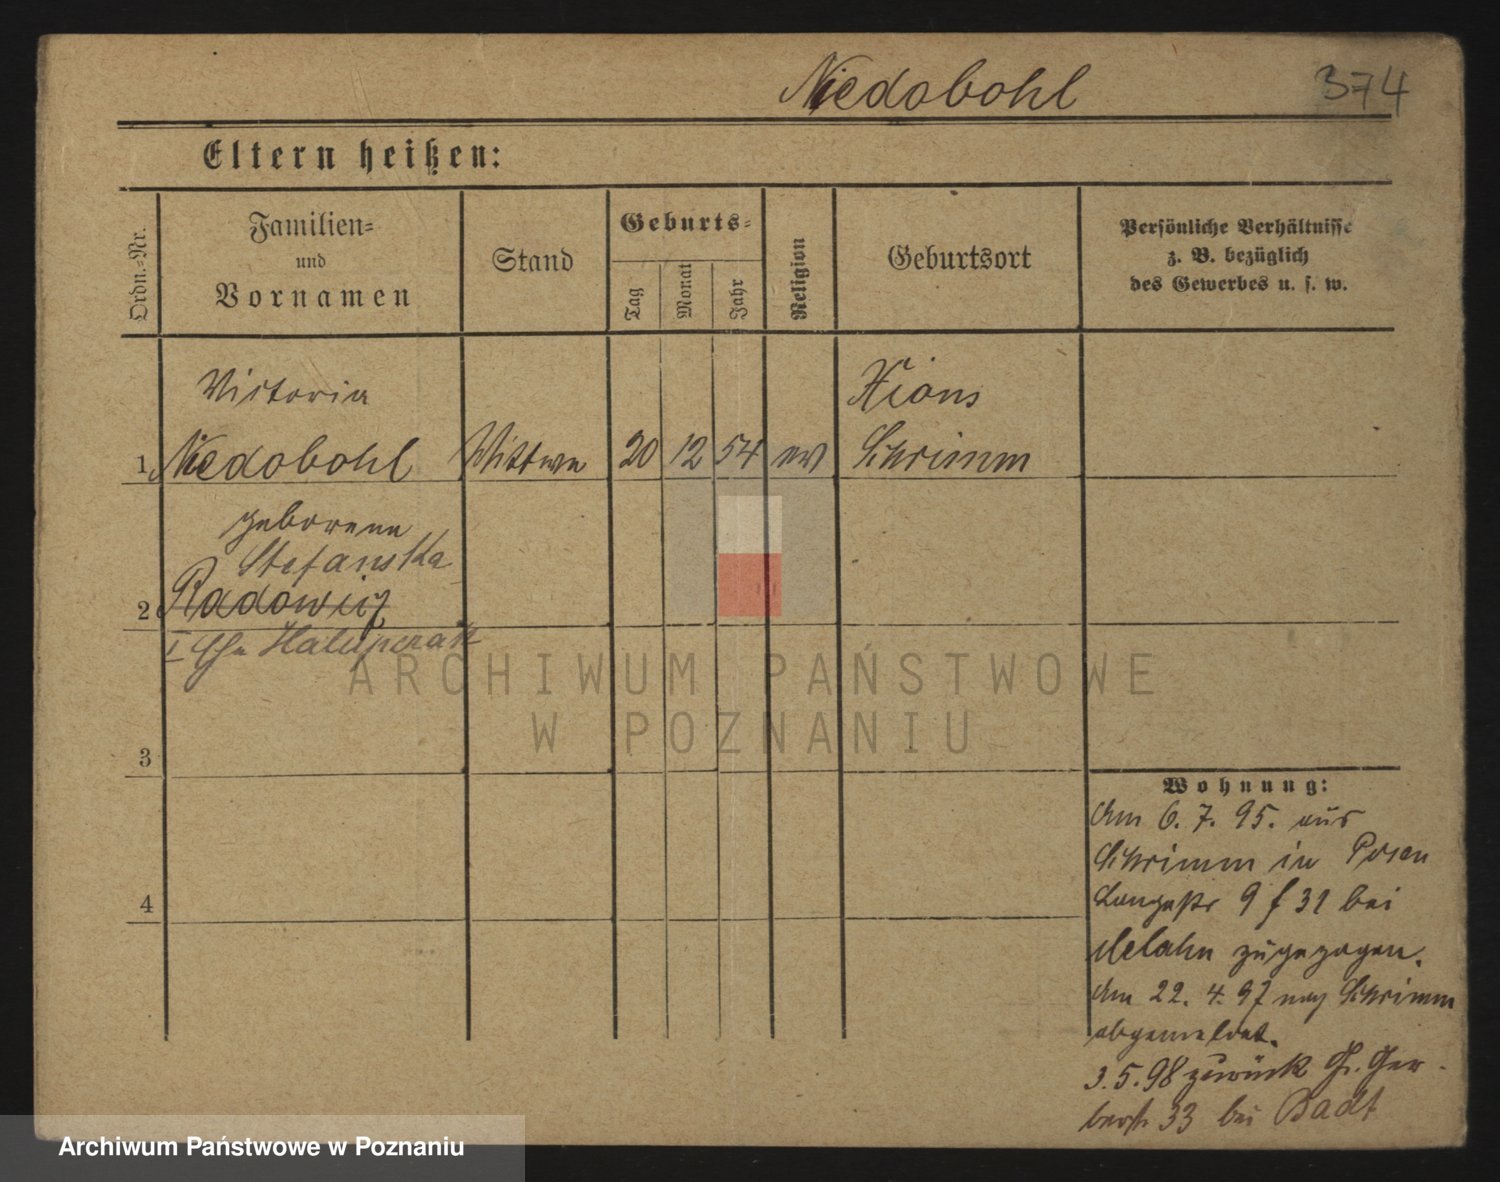 Niedobohl 374
Eltern heißen:
Ordn.-Nr.
Familien-
und
Vornamen
Stand
Geburts-
Tag
Monat
Jahr
Religion
Geburtsort
Persönliche Verhältnisse
z. B. bezüglich
des Gewerbes u. s. w.
Victoria Xions
1 Niedobohl Wittwe 20 12 54 ev Schrimm
geborene
Stefanska
2 Radowicz
I Ehe
3
4
Wohnung:
Am 6. 7. 95. aus
Schrimm in Posen
Langestr 9 f 31 bei
zugezogen.
Am 22. 4. 97 nach Schrimm
abgemeldet.
3. 5. 98 zurück Gr. Ger-
berstr 33 bei Badt
ARCHIWUM PAŃSTWOWE
W POZNANIU
Archiwum Państwowe w Poznaniu